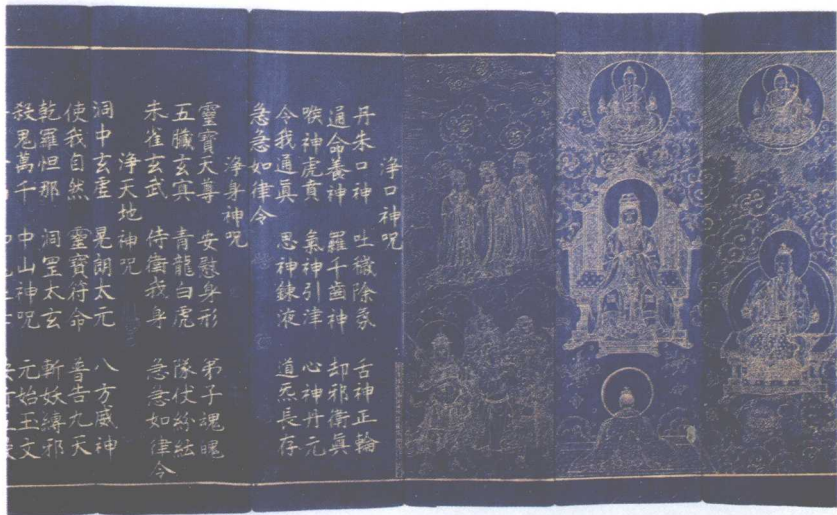 淨口神咒
丹朱口神 吐穢除氛 舌神正輪
通命養神 羅千齒神 却邪衛眞
喉神虎賁 氣神引津 心神丹元
令我通眞 思神鍊液 道炁長存
急急如律令
淨身神咒
靈寶天尊 安慰身形 弟子魂魄
五臟玄冥 青龍白虎 隊伏紛紜
朱雀玄武 侍衛我身 急急如律令
淨天地神咒
洞中玄虛 晃朗太元 八方威神
使我自然 靈寶符命 普告九天
乾羅怛那 洞罡太玄 斬妖縛邪
殺鬼萬千 中山神咒 元始玉文